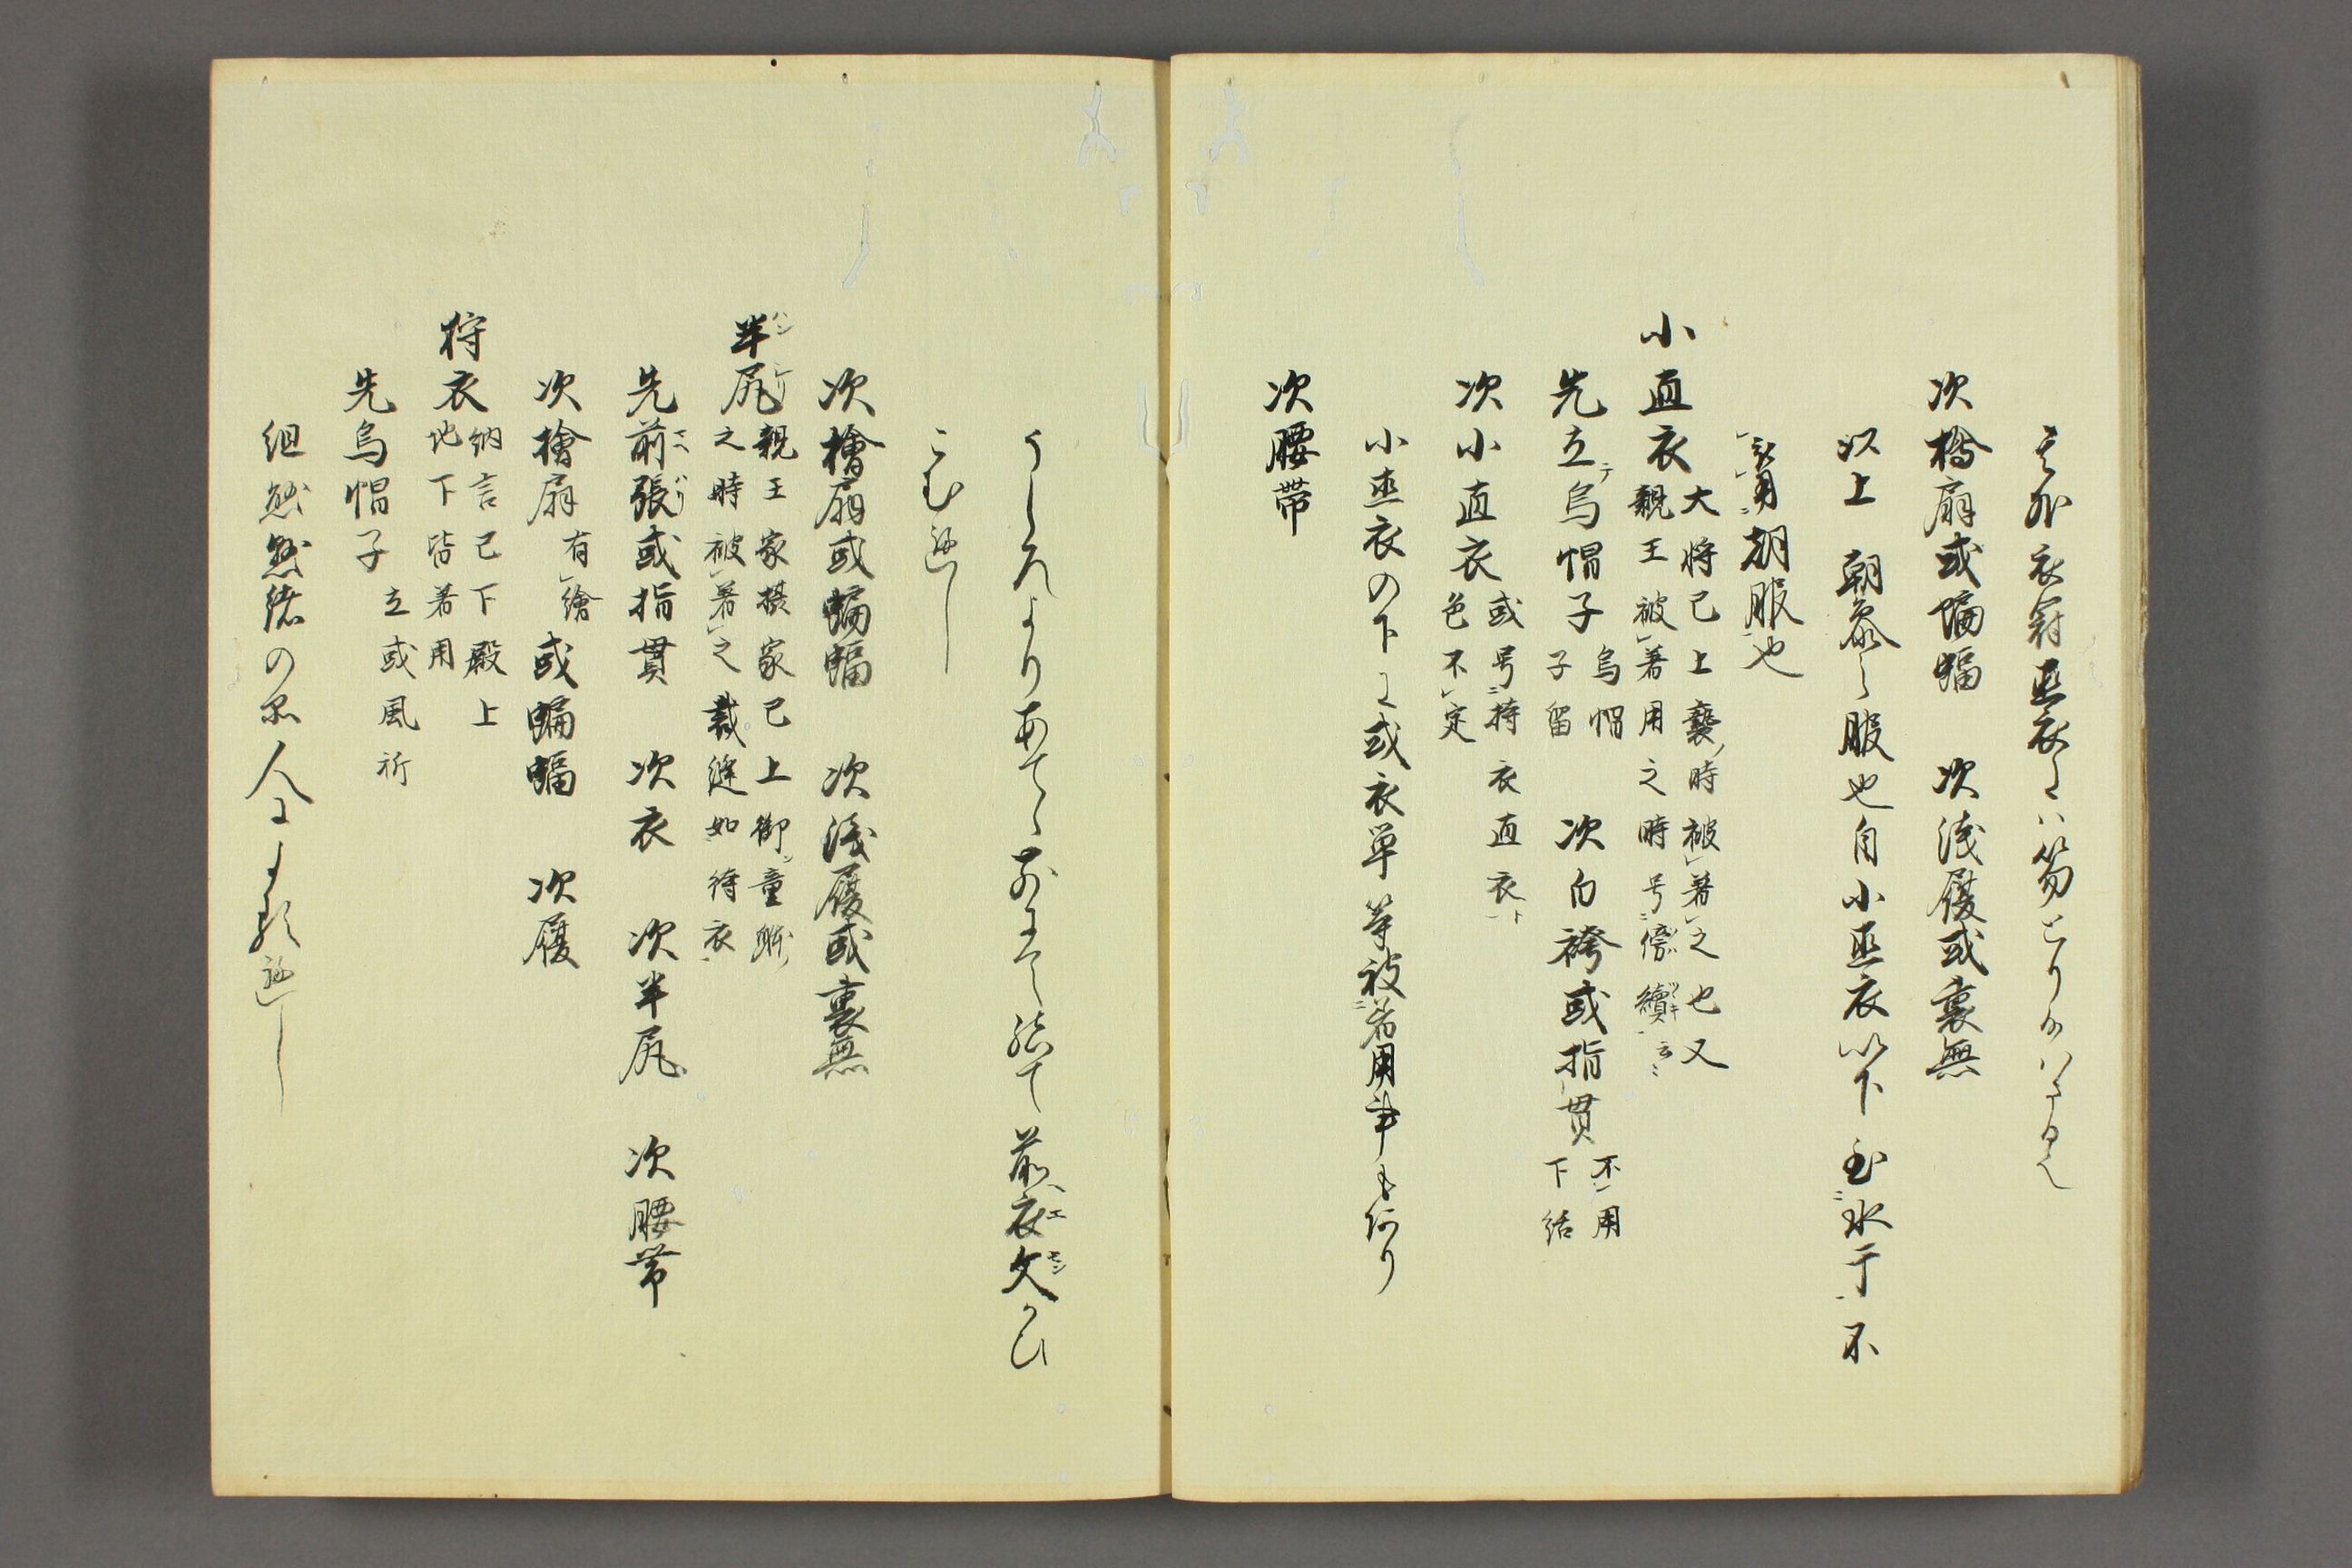 其外衣冠直衣には笏とりかはさるへ
次檜扇或蝙蝠　次浅履或裏無
以上朝参之服也自小直衣以下至水干不
論胡服也
小直衣　大将已上褻時被著之也又
親王被著用之時号傍續云々
先立烏帽子　烏帽
子留
次白袴或指貫　不用
下結
次小直衣　或号狩衣直衣
色不定
小直衣の下に或衣単等被著用事もあり
次腰帯
うしろよりあてゝ前にて結て前衣文かひ
こむ
次檜扇或蝙蝠　次浅履或裏無
半尻　親王家摂家已上御童
之時被著之裁縫如狩衣
先前張或指貫　次衣　次半尻　次腰帯
次檜扇　有繪
或蝙蝠　次履
狩衣　納言已下殿上
地下皆著用
先烏帽子　立或風折
但懸緒の